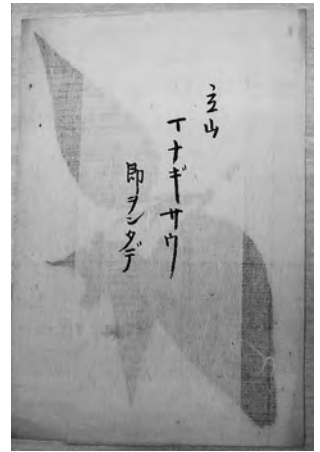 立山
イナギサウ
即ヲンタデ